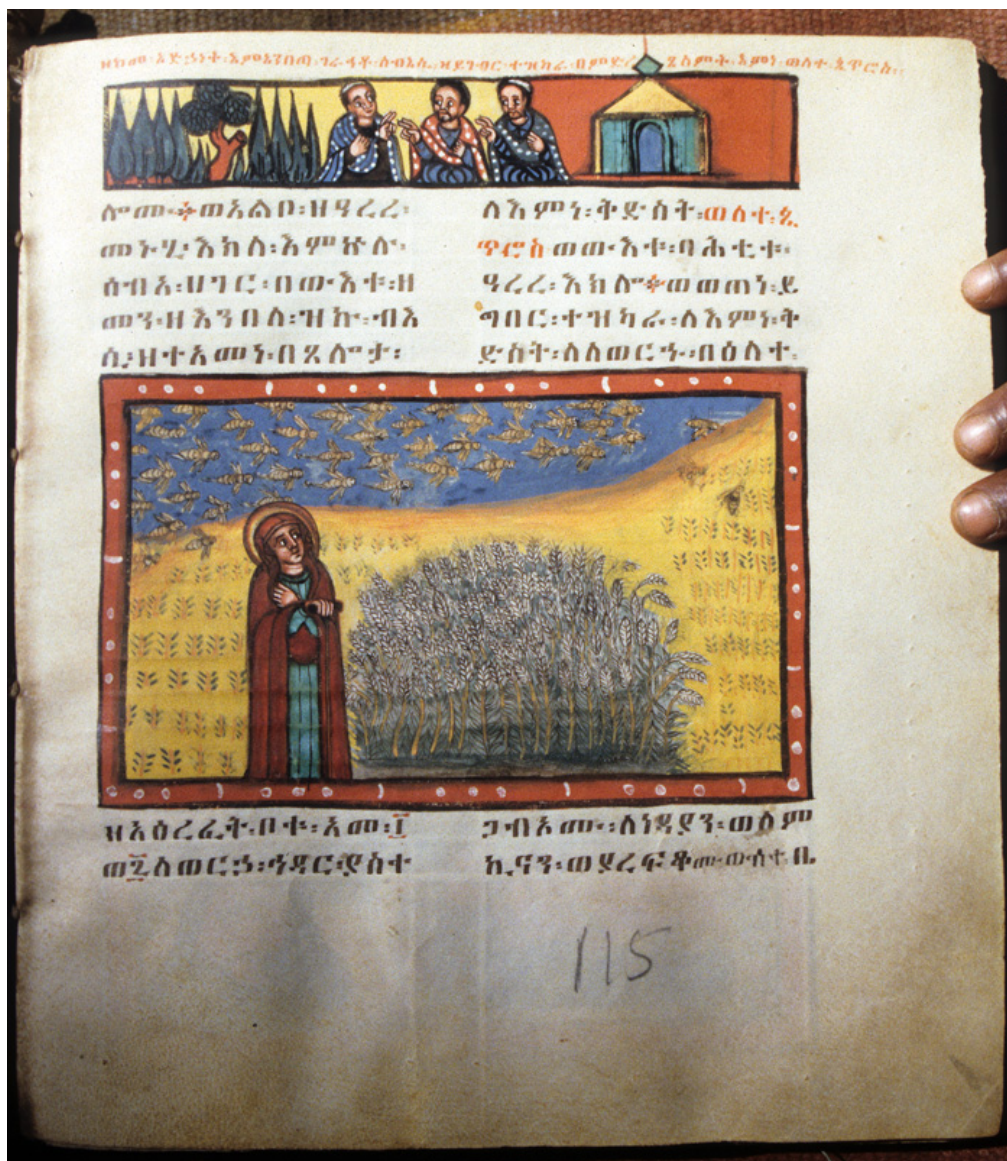 ዘከመ፡አድኃነት፡እምአንበጣ፡ገራህቶ፡ለብእሲ፡ዘይገብር፡ተዝካራ፡በምድረ፡ጺስምት፡እምነ፡ወለተ፡ጴጥሮስ።
ሎሙ፨ወአልቦ፡ዘዓረረ፡
መኑሂ፡እክለ፡እምኵሉ፡
ሰብአ፡ሀገር፡በውእቱ፡ዘ
መን፡ዘእንበለ፡ዝኩ፡ብእ
ሲ፡ዘተአመነ፡በጸሎታ፡
ለእምነ፡ቅድስት፡ወለተ፡ጴ
ጥሮስ፡ወውእቱ፡ባሕቲቱ፡
ዓረረ፡እክሎ፨ወወጠነ፡ይ
ግበር፡ተዝካራ፡ለእምነ፡ቅ
ድስት፡ለለወርኁ፡በዕለተ፡
ዘአዕረፈት፡ቦቱ፡አመ፡፲
ወ፯ለወርኃ፡ኅዳር፡ያስተ
ጋብኦሙ፡ለነዳያን፡ወለም
ኪናን፡ወያረፍቆሙ፡ውስተ፡ቤ
115